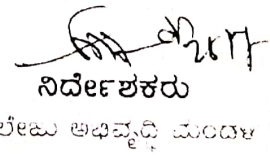 ನಿರ್ದೇಶಕರು
ಲೇಜು ಅಭಿವೃದ್ಧಿ ಮಂಡಳಿ